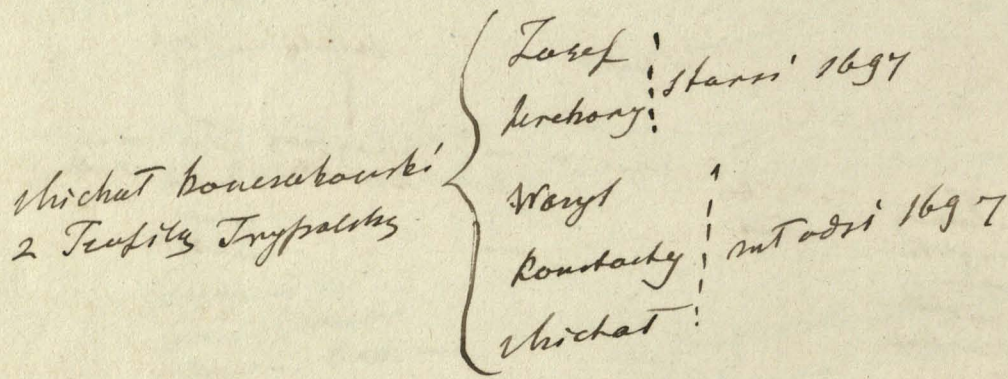 Michał Konczakowski
z Teofilą Trypolską
Józef
Hrehory
starsi 1697
Wasyl
Konstachy
Michał
młodsi 1697